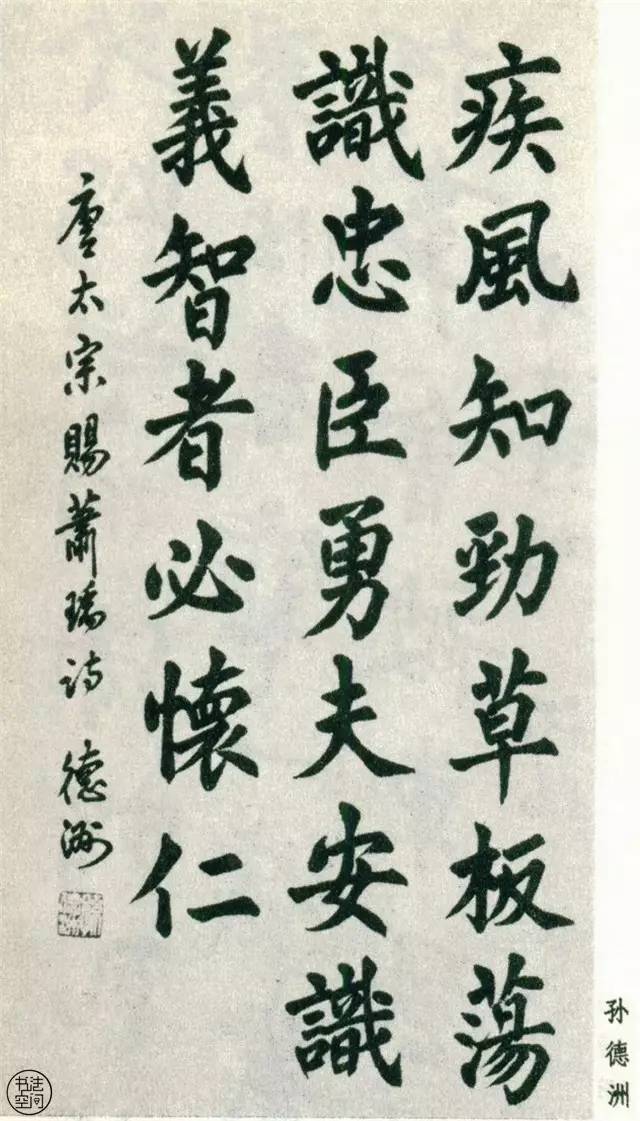 疾風知勁草板蕩
識忠臣勇夫安識
義智者必懷仁
唐太宗賜蕭瑀诗 德洲
孙德洲
书法空间